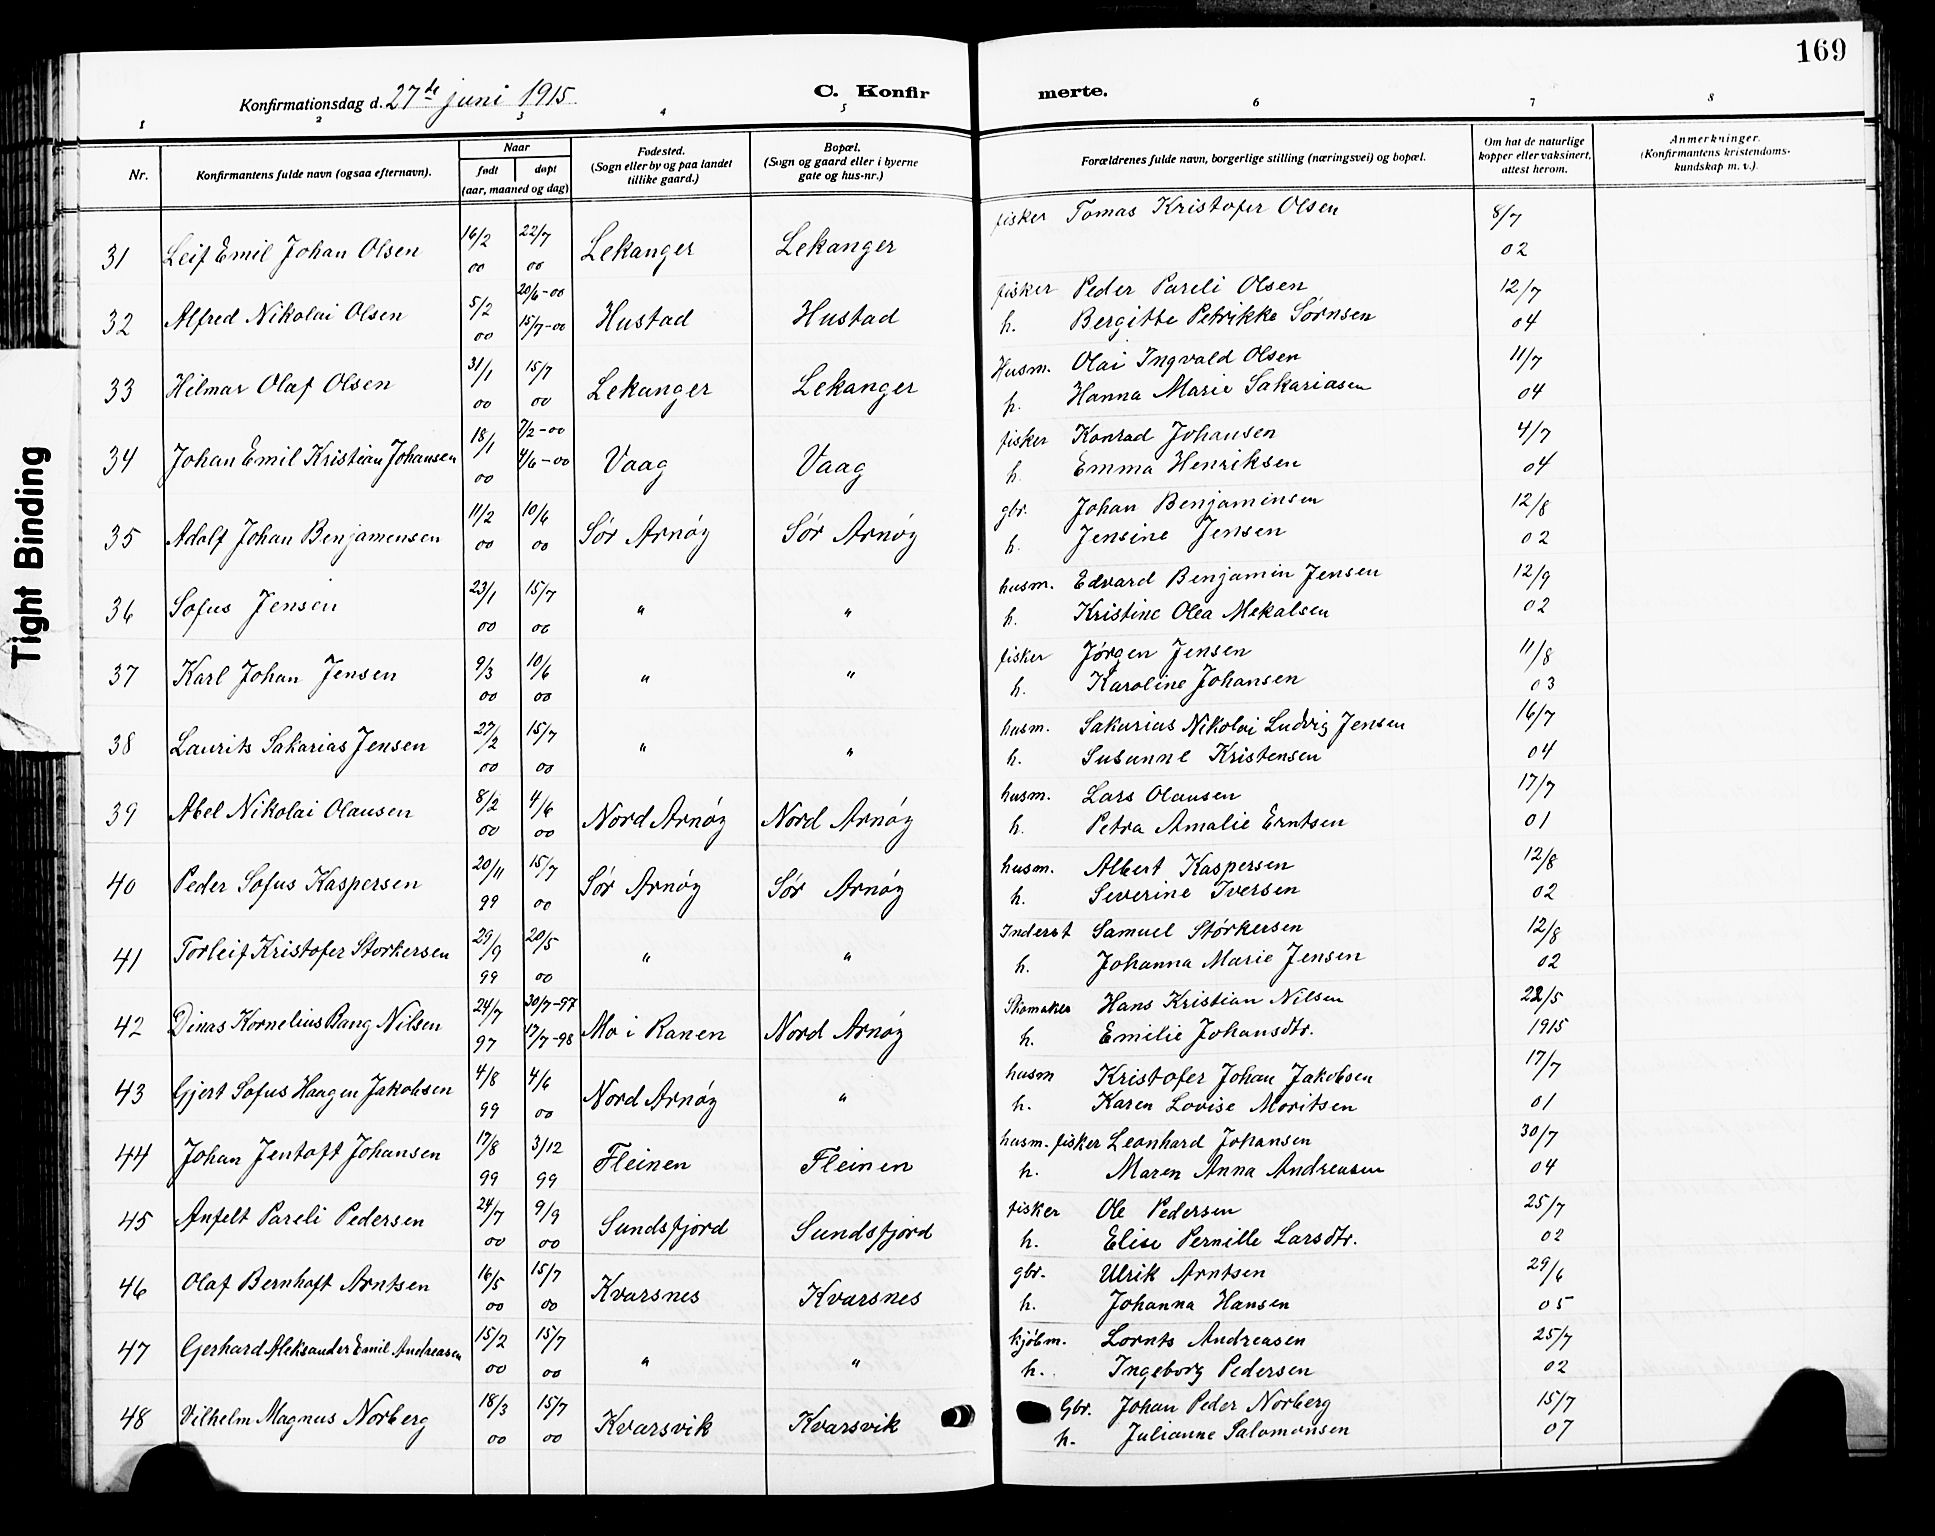 169
Konfirmationsdag d. 27de juni 1915.
C. Konfirmerte.
1 2 3 4 5 6 7 8
Nr. Konfirmantens fulde navn (ogsaa efternavn). Naar født døpt (aar, maaned og dag) Fødested. (Sogn eller by og paa landet tillike gaard.) Bopæl. (Sogn og gaard eller i byerne gate og hus-nr.) Forældrenes fulde navn, borgerlige stilling (næringsvei) og bopæl. Om hat de naturlige kopper eller vaksinert, attest herom. Anmerkninger. (Konfirmantens kristendoms-kundskap m. v.).
31 Leif Emil Johan Olsen 16/2 00 22/7 00 Lekanger Lekanger fisker Tomas Kristofer Olsen 8/7 02
32 Alfred Nikolai Olsen 5/2 00 20/6-00 15/7-00 Hustad Hustad fisker Peder Pareli Olsen 12/7
h. Bergitte Petrikke Sørnsen 04
33 Hilmar Olaf Olsen 31/1 00 15/7 00 Lekanger Lekanger Husm. Olai Ingvald Olsen 11/7
h. Hanna Marie Sakariasen 04
34 Johan Emil Kristian Johansen 18/1 00 7/2-00 4/6-00 Vaag Vaag fisker Konrad Johansen 4/7
h. Emma Henriksen 04
35 Adolf Johan Benjamensen 11/2 00 10/6 00 Sør Arnøy Sør Arnøy gbr. Johan Benjaminsen 12/8
h. Jensine Jensen 02
36 Sofus Jensen 23/1 00 15/7 00 " " husm. Edvard Benjamin Jensen 12/9
h. Kristine Olea Mekalsen 02
37 Karl Johan Jensen 9/3 00 10/6 00 " " fisker Jørgen Jensen 11/8
h. Karoline Johansen 03
38 Laurits Sakarias Jensen 27/2 00 15/7 00 " " husm. Sakarias Nikolai Ludvig Jensen 16/7
h. Susanne Kristensen 04
39 Abel Nikolai Olausen 8/2 00 4/6 00 Nord Arnøy Nord Arnøy husm. Lars Olausen 17/7
h. Petra Amalie Erntsen 01
40 Peder Sofus Kaspersen 20/11 99 15/7 00 Sør Arnøy Sør Arnøy husm. Albert Kaspersen 12/8
h. Severine Iversen 02
41 Torleif Kristofer Storkersen 29/9 99 20/5 00 " " Inderst Samuel Størkersen 12/8
h. Johanna Marie Jensen 02
42 Dinas Kornelius Bang Nilsen 24/7 97 30/7-97 17/7-98 Mo i Ranen Nord Arnøy Skomaker Hans Kristian Nilsen 22/5
h. Emilie Johansdtr. 1915
43 Gjert Sofus Haagen Jakobsen 4/8 99 4/6 00 Nord Arnøy " husm Kristofer Johan Jakobsen 17/7
h. Karen Lovise Moritsen 01
44 Johan Jentoft Johansen 17/8 99 3/12 99 Fleinen Fleinen husm. fisker Leonhard Johansen 30/7
h. Maren Anna Andreasen 04
45 Anfelt Pareli Pedersen 24/7 00 9/9 00 Sundsfjord Sundsfjord fisker Ole Pedersen 25/7
h. Elise Pernille Larsdtr. 02
46 Olaf Bernhoft Arntsen 16/5 00 15/7 00 Kvarsnes Kvarsnes gbr. Ulrik Arntsen 29/6
h. Johanna Hansen 05
47 Gerhard Aleksander Emil Andreasen 15/2 00 15/7 00 " " kjøbm. Lornts Andreasen 25/7
h. Ingeborg Pedersen 02
48 Vilhelm Magnus Norberg 18/3 00 15/7 00 Kvarsvik Kvarsvik Gbr. Johan Peder Norberg 15/7
h. Julianne Salomonsen 07
Tight Binding